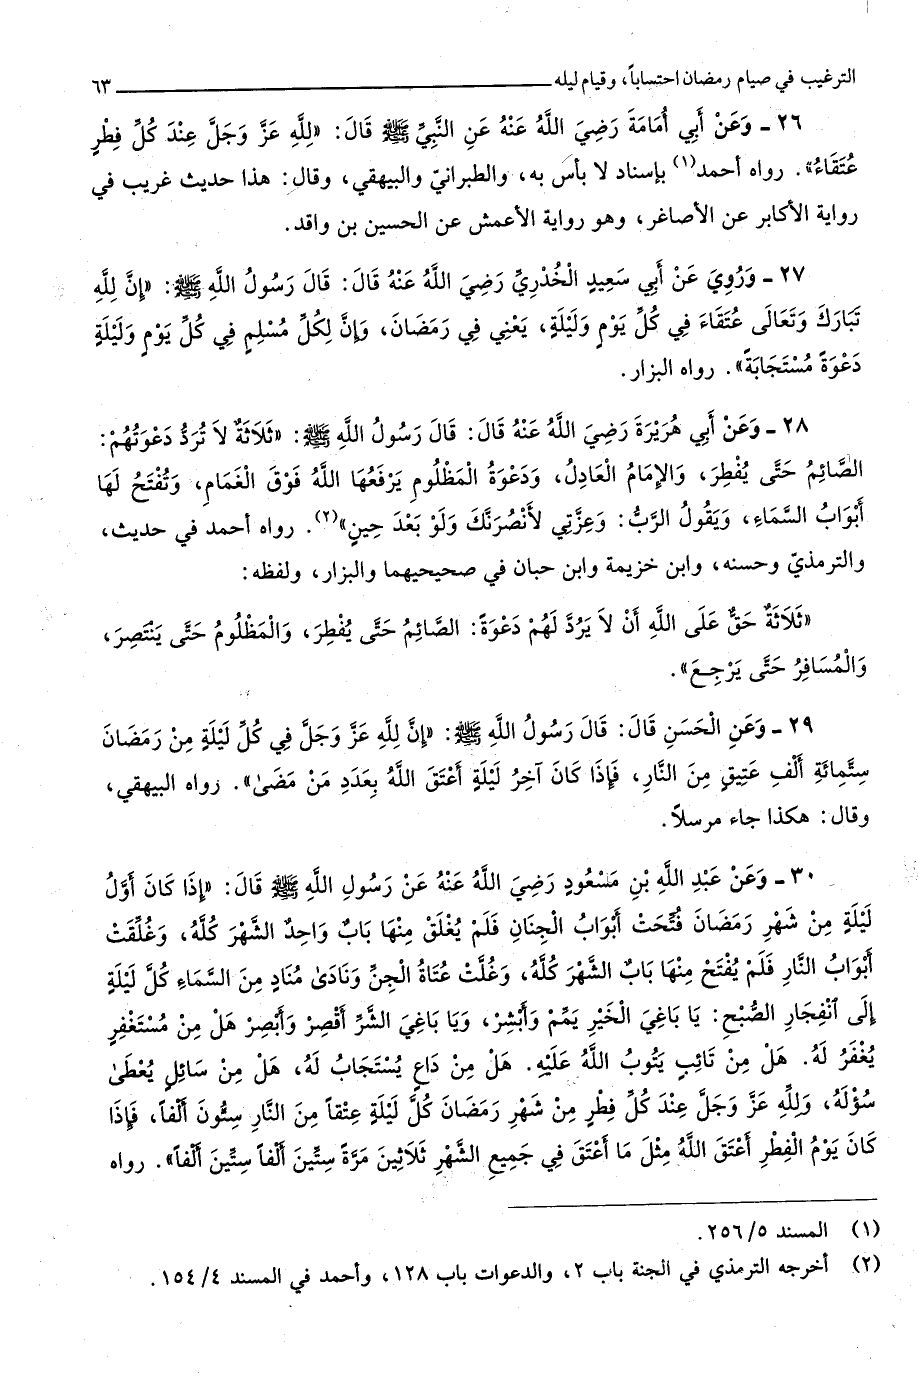 الترغيب في صيام رمضان احتساباً، وقيام ليله ٦٣
٢٦ ـ وَعَنْ أَبِي أُمَامَةَ رَضِيَ اللَّهُ عَنْهُ عَنِ النَّبِيِّ ﷺ قَالَ: «لِلَّهِ عَزَّ وَجَلَّ عِنْدَ كُلِّ فِطْرٍ
عُتَقَاءُ». رواه أحمد(١) بإسناد لا بأس به، والطبرانيّ والبيهقي، وقال: هذا حديث غريب في
رواية الأكابر عن الأصاغر، وهو رواية الأعمش عن الحسين بن واقد.
٢٧ ـ وَرُوِيَ عَنْ أَبِي سَعِيدٍ الْخُدْرِيِّ رَضِيَ اللَّهُ عَنْهُ قَالَ: قَالَ رَسُولُ اللَّهِ ﷺ: «إِنَّ لِلَّهِ
تَبَارَكَ وَتَعَالَى عُتَقَاءَ فِي كُلِّ يَوْمٍ وَلَيْلَةٍ، يَعْنِي فِي رَمَضَانَ، وَإِنَّ لِكُلِّ مُسْلِمٍ فِي كُلِّ يَوْمٍ وَلَيْلَةٍ
دَعْوَةً مُسْتَجَابَةً». رواه البزار.
٢٨ ـ وَعَنْ أَبِي هُرَيْرَةَ رَضِيَ اللَّهُ عَنْهُ قَالَ: قَالَ رَسُولُ اللَّهِ ﷺ: «ثَلَاثَةٌ لَا تُرَدُّ دَعْوَتُهُمْ:
الصَّائِمُ حَتَّى يُفْطِرَ، وَالإِمَامُ الْعَادِلُ، وَدَعْوَةُ الْمَظْلُومِ يَرْفَعُهَا اللَّهُ فَوْقَ الْغَمَامِ، وَتُفْتَحُ لَهَا
أَبْوَابُ السَّمَاءِ، وَيَقُولُ الرَّبُّ: وَعِزَّتِي لأَنْصُرَنَّكَ وَلَوْ بَعْدَ حِينٍ»(٢). رواه أحمد في حديث،
والترمذيّ وحسنه، وابن خزيمة وابن حبان في صحيحيهما والبزار، ولفظه:
«ثَلَاثَةٌ حَقٌّ عَلَى اللَّهِ أَنْ لَا يَرُدَّ لَهُمْ دَعْوَةً: الصَّائِمُ حَتَّى يُفْطِرَ، وَالْمَظْلُومُ حَتَّى يَنْتَصِرَ،
وَالْمُسَافِرُ حَتَّى يَرْجِعَ».
٢٩ ـ وَعَنِ الْحَسَنِ قَالَ: قَالَ رَسُولُ اللَّهِ ﷺ: «إِنَّ لِلَّهِ عَزَّ وَجَلَّ فِي كُلِّ لَيْلَةٍ مِنْ رَمَضَانَ
سِتَّمِائَةِ أَلْفِ عَتِيقٍ مِنَ النَّارِ، فَإِذَا كَانَ آخِرُ لَيْلَةٍ أَعْتَقَ اللَّهُ بِعَدَدِ مَنْ مَضَىٰ». رواه البيهقي،
وقال: هكذا جاء مرسلاً.
٣٠ ـ وَعَنْ عَبْدِ اللَّهِ بْنِ مَسْعُودٍ رَضِيَ اللَّهُ عَنْهُ عَنْ رَسُولِ اللَّهِ ﷺ قَالَ: «إِذَا كَانَ أَوَّلُ
لَيْلَةٍ مِنْ شَهْرِ رَمَضَانَ فُتِّحَتْ أَبْوَابُ الْجِنَانِ فَلَمْ يُغْلَقْ مِنْهَا بَابٌ وَاحِدٌ الشَّهْرَ كُلَّهُ، وَغُلِّقَتْ
أَبْوَابُ النَّارِ فَلَمْ يُفْتَحْ مِنْهَا بَابٌ الشَّهْرَ كُلَّهُ، وَغُلَّتْ عُتَاةُ الْجِنِّ وَنَادَىٰ مُنَادٍ مِنَ السَّمَاءِ كُلَّ لَيْلَةٍ
إِلَى ٱنْفِجَارِ الصُّبْحِ: يَا بَاغِيَ الْخَيْرِ يَمِّمْ وَأَبْشِرْ، وَيَا بَاغِيَ الشَّرِّ أَقْصِرْ وَأَبْصِرْ هَلْ مِنْ مُسْتَغْفِرٍ
يُغْفَرُ لَهُ. هَلْ مِنْ تَائِبٍ يَتُوبُ اللَّهُ عَلَيْهِ. هَلْ مِنْ دَاعٍ يُسْتَجَابُ لَهُ، هَلْ مِنْ سَائِلٍ يُعْطَىٰ
سُؤْلَهُ، وَلِلَّهِ عَزَّ وَجَلَّ عِنْدَ كُلِّ فِطْرٍ مِنْ شَهْرِ رَمَضَانَ كُلَّ لَيْلَةٍ عِتْقاً مِنَ النَّارِ سِتُّونَ أَلْفاً، فَإِذَا
كَانَ يَوْمُ الْفِطْرِ أَعْتَقَ اللَّهُ مِثْلَ مَا أَعْتَقَ فِي جَمِيعِ الشَّهْرِ ثَلَاثِينَ مَرَّةً سِتِّينَ أَلْفاً سِتِّينَ أَلْفاً». رواه
(١) المسند ٢٥٦/٥.
(٢) أخرجه الترمذي في الجنة باب ٢، والدعوات باب ١٢٨، وأحمد في المسند ١٥٤/٤.